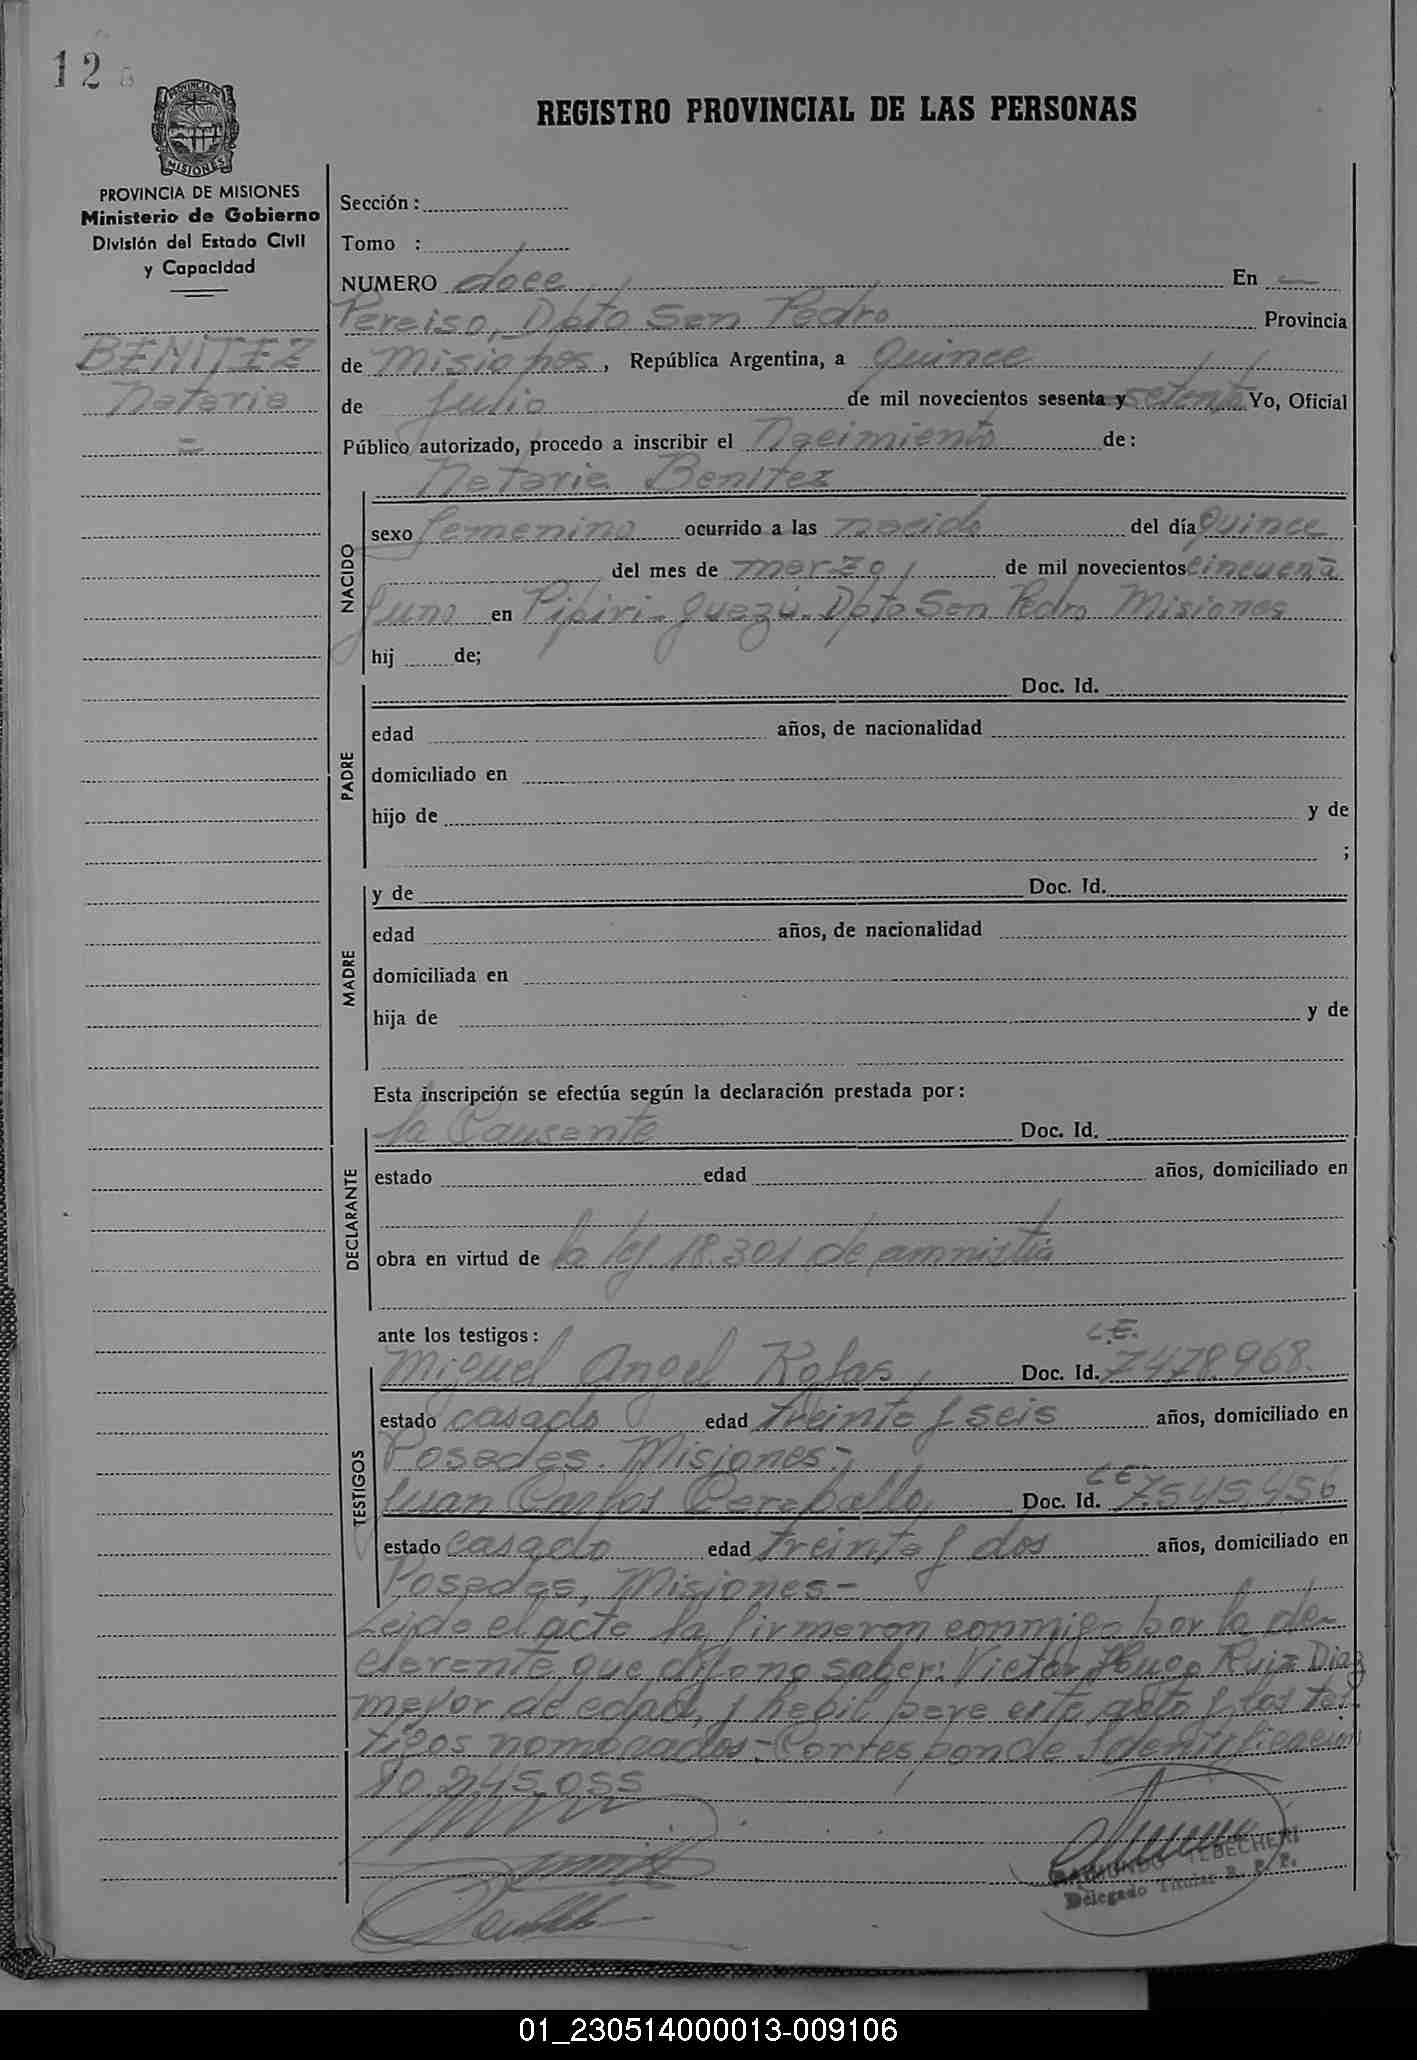 12
REGISTRO PROVINCIAL DE LAS PERSONAS
PROVINCIA DE MISIONES
Ministerio de Gobierno
División del Estado Civil
y Capacidad
BENITEZ
Nataria
=
Sección :
Tomo :
NUMERO doce En —
Paraiso, Dpto San Pedro Provincia
de Misiones, República Argentina, a quince
de Julio de mil novecientos sesenta y setenta Yo, Oficial
Público autorizado, procedo a inscribir el Nacimiento de:
Nataria Benitez
NACIDO
sexo femenino ocurrido a las nacida del día quince
del mes de marzo de mil novecientos cincuenta
y uno en Pipiri-Guazú. Dpto San Pedro Misiones
hij de;
PADRE
Doc. Id.
edad años, de nacionalidad
domiciliado en
hijo de y de
;
MADRE
y de Doc. Id.
edad años, de nacionalidad
domiciliada en
hija de y de
Esta inscripción se efectúa según la declaración prestada por:
DECLARANTE
la Causante Doc. Id.
estado edad años, domiciliado en
obra en virtud de la ley 18.301 de amnistía
ante los testigos:
TESTIGOS
Miguel Angel Rojas, Doc. Id. L.E. 7478.968.
estado casado edad treinta y seis años, domiciliado en
Posadas. Misiones-
Juan Carlos Doc. Id. L.E. 7.545.456
estado casado edad treinta y dos años, domiciliado en
Posadas, Misiones-
Leida el acta la firmaron conmigo por la de-
clarante que dijo no saber: Victor Hugo Ruiz Diaz
mayor de edad, y habil para este acto y los tes-
tigos nombrados-Corresponde Identificación
10.245.055
RAIMUNDO TEBECHERI
Delegado Titular R. P. P.
01_230514000013-009106